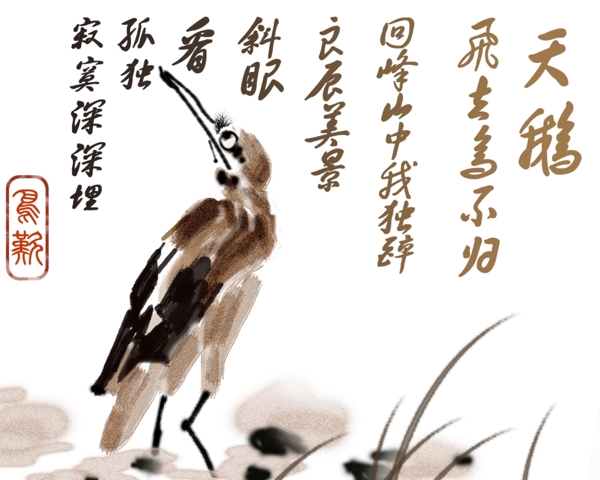 天鹅
飛去鳥不归
回峰山中我独醉
良辰美景
斜眼
看
孤独
寂寞深深埋